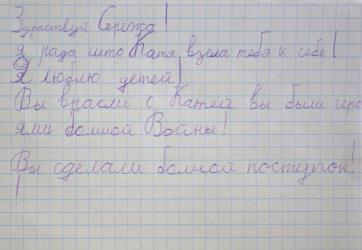 Здраствуй Сережа!
я рада што Катя взела тебя к себе!
Я люблю детей!
Вы врасли с Катей вы были геро
ями болшой Войны!
Вы сделали болной поступок!
!